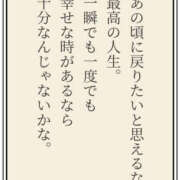 あの頃に戻りたいと思えるな
最高の人生。
一瞬でも一度でも
幸せな時があるなら
十分なんじゃないかな。